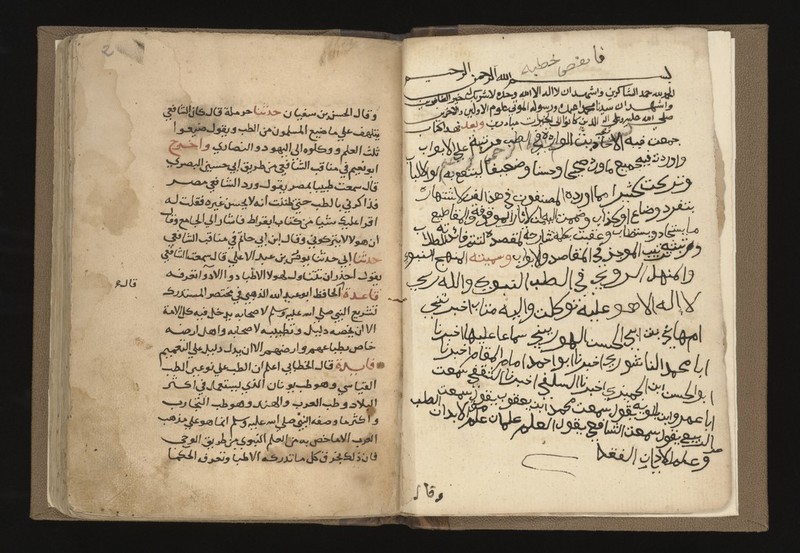 بسم الله الرحمن الرحيم
الحمد لله حمد الشاكرين واشهد ان لا اله الا الله وحده لا شريك له
واشهد ان سيدنا محمدا عبده ورسوله الموتى علوم الاولين والاخرين
صلى الله عليه وعلى اله الذين وبعد فهذا كتاب
جمعت فيه الاحاديث الواردة في الطب مرتبة على الابواب
واوردت فيه جميع ما ورد صحيحا وحسنا وضعيفا لينتفع به اولو الالباب
وتركت كثيرا مما اورده المصنفون في هذا الفن لاشتهاره
بتفرد وضاع او كذاب وضممت اليه الاثار الموقوفة والمقاطيع
ما يستجاد ويستطاب وعقبت بكلمة شارحة للمقصد لتتم فائدته للطلاب
ورتبته ترتيب الموجز في المقاصد والابواب وسميته المنهج السوي
والمنهل الروي في الطب النبوي والله ربي
لا اله الا هو عليه توكلت واليه متاب اخبرتني
ام هانئ بنت ابي الحسن الهوريني سماعا عليها اخبرنا
ابا محمد النشاوري اخبرنا ابو احمد امام المقام اخبرنا
ابو الحسن ابن الجميزي اخبرنا السلفي اخبرنا الثقفي سمعت
ابا عمرو ابن بالويه يقول سمعت محمد ابن يعقوب يقول سمعت
الربيع يقول سمعت الشافعي يقول العلم علمان علم الطب للابدان
وعلم الاديان الفقه
وقال
2
وقال الحسن بن سفيان حدثنا حرملة قال كان الشافعي
يتلهف على ما ضيع المسلمون من الطب ويقول ضيعوا
ثلث العلم ووكلوه الى اليهود والنصارى واخرج
ابو نعيم في مناقب الشافعي من طريق ابي حسين البصري
قال سمعت طبيبا بمصر يقول ورد الشافعي مصر
فذاكرني بالطب حتى ظننت انه لا يحسن غيره فقلت له
اقرا عليك شيئا من كتاب ابقراط فاشار الى الجامع وقال
ان هولا لا يتركوني وقال ابن ابي حاتم في مناقب الشافعي
حدثنا ابي حدثنا يونس بن عبد الاعلى قال سمعت الشافعي
يقول احذر ان تتناول لهولا الاطبا دوا الا دوا تعرفه
قاعدة قال الحافظ ابو عبد الله الذهبي في مختصر المستدرك
لتشريع النبي صلى الله عليه وسلم لاصحابه يدخل فيه كل الامة
الا ان يخصه دليل وتطبيبه لاصحابه واهل ارضه
خاص بطباعهم وارضهم الا ان يدل دليل على التعميم
فايدة قال الخطابي اعلم ان الطب على نوعين الطب
القياسي وهو طب يونان الذي يستعمل في اكثر
البلاد وطب العرب والهند وهو طب التجارب
واكثر ما وصفه النبي صلى الله عليه وسلم انما هو على مذهب
العرب الا ما خص به من العلم النبوي من طريق الوحي
فان ذلك يخرق كل ما تدركه الاطبا وتعرفه الحكما